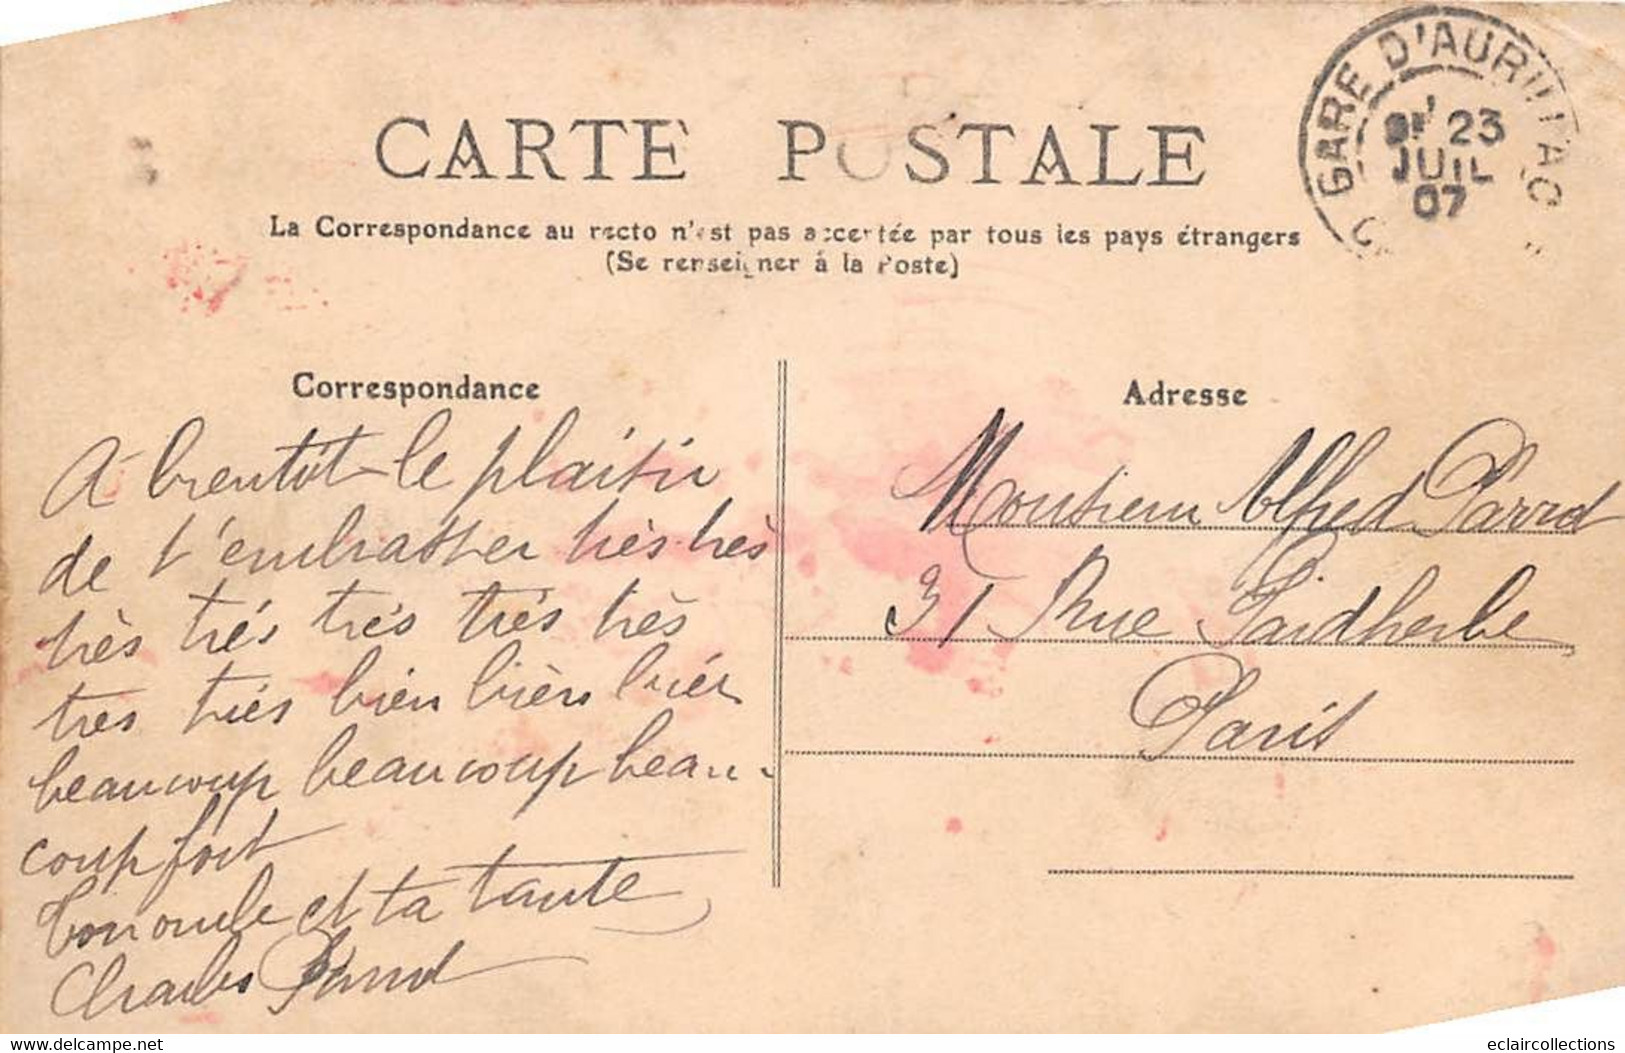 GARE D'AURILLAC
23
JUIL
07
CARTE POSTALE
La Correspondance au recto n'est pas acceptée par tous les pays étrangers
(Se renseigner à la Poste)
Correspondance
Adresse
A bientôt le plaisir
de t'embrasser très très
très trés trés trés très
tres triés bien bièn bièn
beaucoup beaucoup beau-
coup fort
Ton oncle et ta tante
Charles
Monsieur Alfred
31 Rue Faidherbe
Paris
delcampe.net
eclaircollections